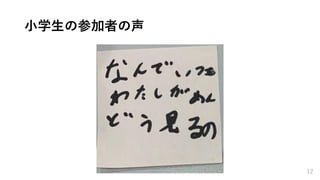 小学生の参加者の声
なんでいつも
わたしがめん
どう見るの
12